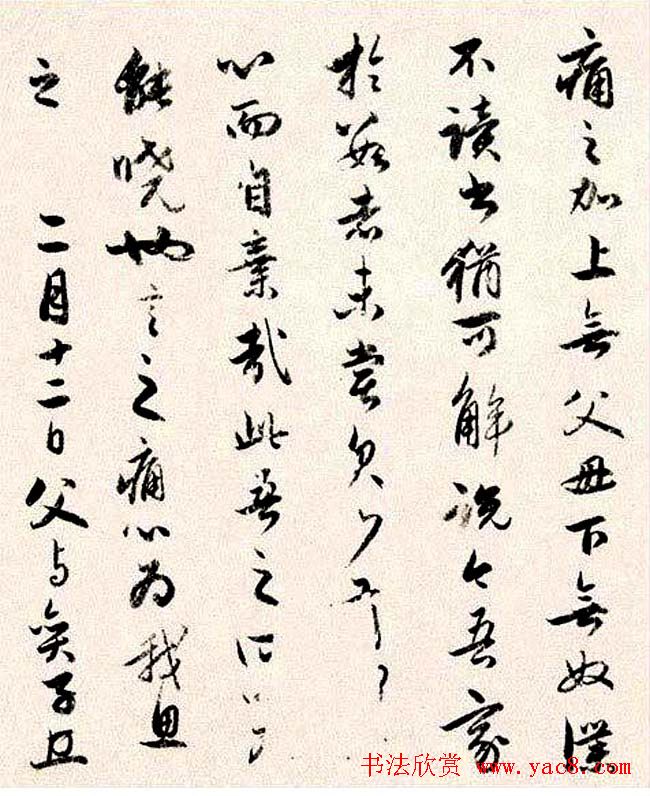 痛之加上無父母下無奴僕
不讀书猶可解況今吾家
於數者未嘗欠少
心而自棄哉此吾之所不
能曉也言之痛心為我思
之 二月十二日父与
书法欣赏 www.yac8.com